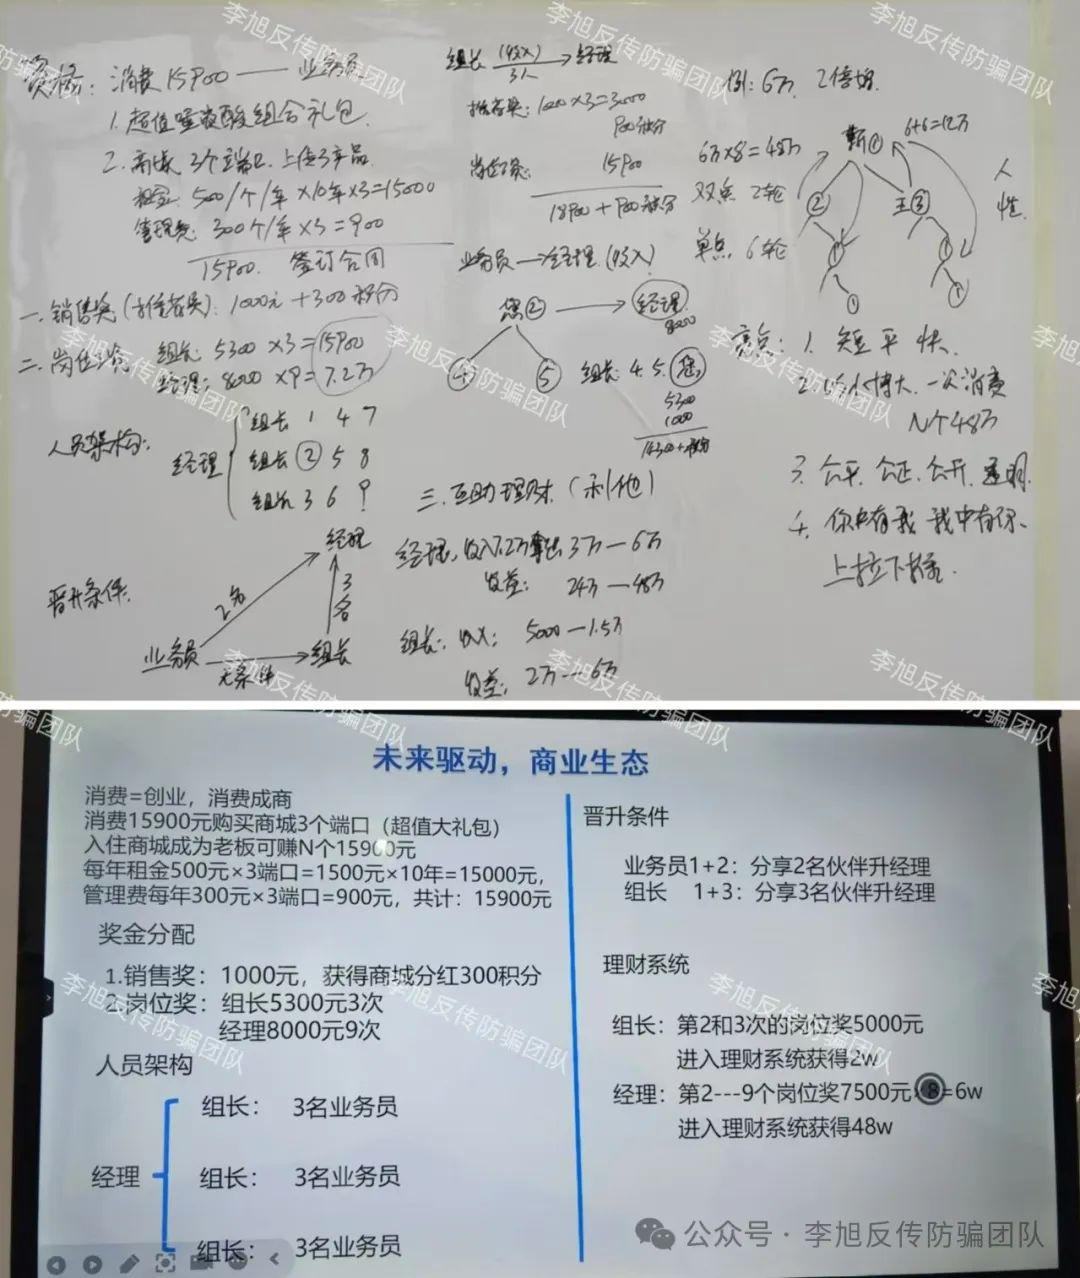 资格：消费15900——业务员
1.超值玻尿酸组合礼包.
2.商城 3个端口.上传3产品.
租金：500/个/年×10年×3=15000
管理费：300个/年×3=900
15900. 签订合同
一.销售奖(推荐奖)：1000元+300积分
二.岗位奖 组长：5300×3=15900
经理：8000×9=7.2万
人员架构：
经理
组长 1 4 7
组长 ② 5 8
组长 3 6 9
晋升条件
经理
2名
3名
业务员
无条件
组长
组长 (收入) 经理
3人
推荐奖：1000×3=3000
900积分
岗位奖：15900
18900+900积分
业务员→经理.(收入)
您②
经理
8000
④ ⑤
组长 4.5.您
5300
1000
14300+积分
三.互助理财(利他)
经理：收入7.2万拿出3万—6万
收益：24万—48万
组长：收入：5000—1.5万
收益：2万—6万
例：6万 2倍增.
6万×8=48万
双点 2轮
单点 6轮
6+6=12万
②
王③
①
①
①
①
人性
亮点：1.短平快.
2.以小博大.一次消费
N个48万
3.公平.公正.公开.透明.
4.你中有我 我中有你.
上拉下推.
未来驱动，商业生态
消费=创业，消费成商
消费15900元购买商城3个端口（超值大礼包）
入住商城成为老板可赚N个15900元
每年租金500元×3端口=1500元×10年=15000元，
管理费每年300元×3端口=900元，共计：15900元
奖金分配
1.销售奖：1000元，获得商城分红300积分
2.岗位奖：组长5300元3次
经理8000元9次
人员架构
经理
组长： 3名业务员
组长： 3名业务员
组长： 3名业务员
晋升条件
业务员1+2：分享2名伙伴升经理
组长 1+3：分享3名伙伴升经理
理财系统
组长：第2和3次的岗位奖5000元
进入理财系统获得2w
经理：第2---9个岗位奖7500元×8=6w
进入理财系统获得48w
公众号·李旭反传防骗团队
李旭反传防骗团队